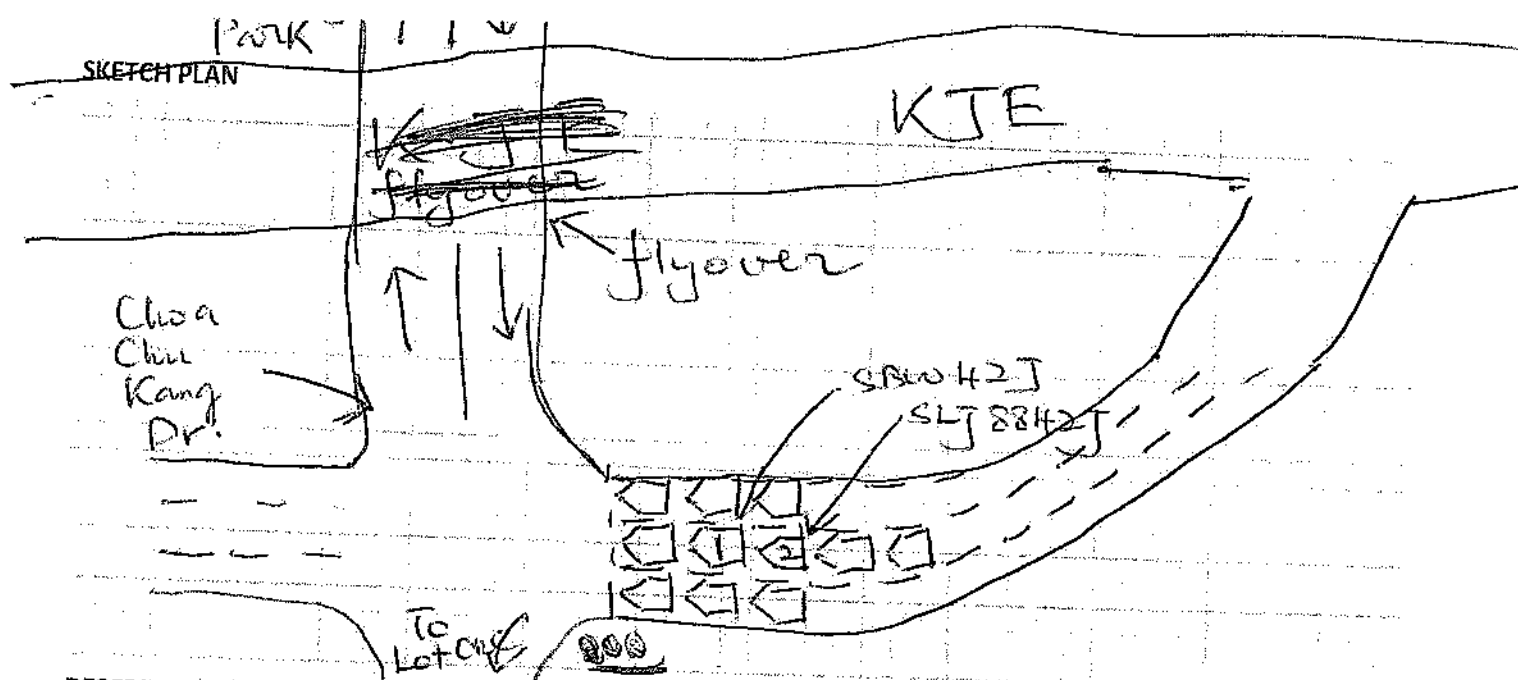 Park
SKETCH PLAN
KJE
KJE
flyover
flyover
Choa
Chu
Kang
Dr.
SBW 42J
SLJ 8842J
1
2
To
Lot One